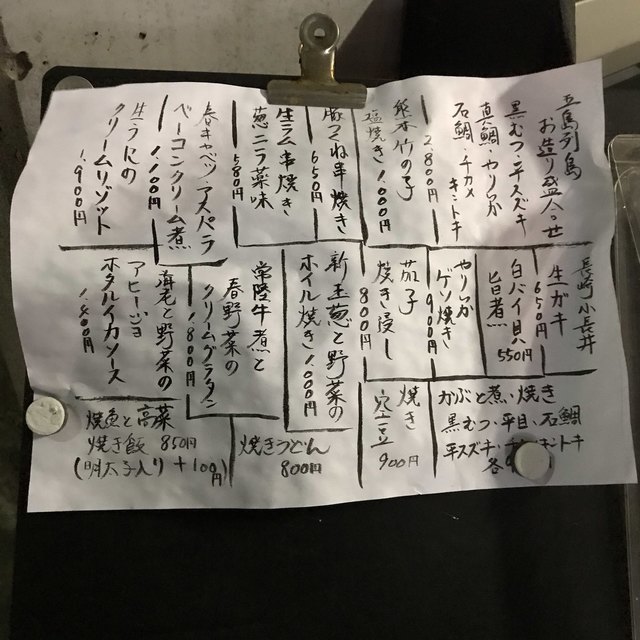 五島列島
お造り盛合せ
黒むつ・平スズキ
真鯛・やりいか
石鯛・チカメ
キントキ
2,800円
熊本竹の子
塩焼き 1,000円
豚つくね串焼き
650円
生ラム串焼き
葱ニラ薬味
580円
春キャベツ・アスパラ
ベーコンクリーム煮
1,100円
生うにの
クリームリゾット
1,900円
長崎小長井
生ガキ
650円
白バイ貝
旨煮
550円
やりいか
ゲソ焼き
900円
茄子
焼き浸し
800円
新玉葱と野菜の
ホイル焼き 1,000円
常陸牛煮と
春野菜の
クリームグラタン
1,800円
海老と野菜の
アヒージョ
ホタルイカソース
1,800円
かぶと煮・焼き
黒むつ・平目・石鯛
平スズキ・チ キントキ
各9
焼き
空豆
900円
焼きうどん
800円
焼魚と高菜
焼き飯 850円
(明太子入り +100円)